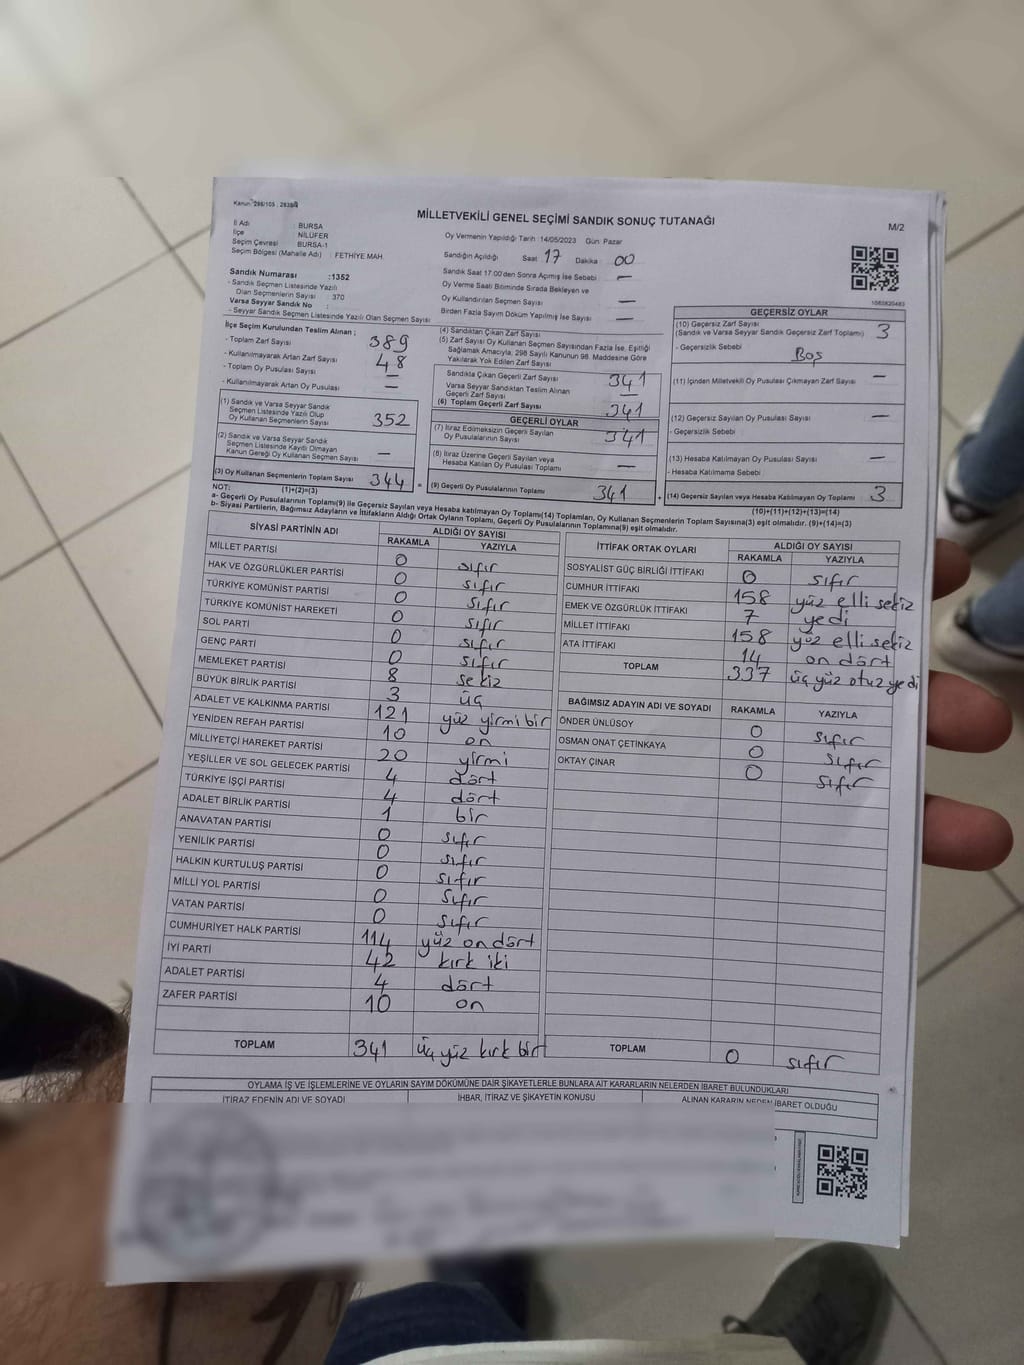 Kanun 298/105 ; 2839/
MİLLETVEKİLİ GENEL SEÇİMİ SANDIK SONUÇ TUTANAĞI
M/2
İl Adı : BURSA
İlçe : NİLÜFER
Seçim Çevresi : BURSA-1
Seçim Bölgesi (Mahalle Adı) : FETHİYE MAH.
Sandık Numarası :1352
- Sandık Seçmen Listesinde Yazılı
Olan Seçmenlerin Sayısı : 370
Varsa Seyyar Sandık No :
- Seyyar Sandık Seçmen Listesinde Yazılı Olan Seçmen Sayısı
Oy Vermenin Yapıldığı Tarih :14/05/2023 Gün: Pazar
Sandığın Açıldığı Saat 17 Dakika : 00
Sandık Saat 17.00'den Sonra Açımış İse Sebebi —
Oy Verme Saati Bitiminde Sırada Bekleyen ve
Oy Kullandırılan Seçmen Sayısı —
Birden Fazla Sayım Döküm Yapılmış İse Sayısı —
İlçe Seçim Kurulundan Teslim Alınan ;
- Toplam Zarf Sayısı 389
- Kullanılmayarak Artan Zarf Sayısı 48
- Toplam Oy Pusulası Sayısı —
- Kullanılmayarak Artan Oy Pusulası —
(1) Sandık ve Varsa Seyyar Sandık
Seçmen Listesinde Yazılı Olup
Oy Kullanan Seçmenlerin Sayısı 352
(2) Sandık ve Varsa Seyyar Sandık
Seçmen Listesinde Kayıtlı Olmayan
Kanun Gereği Oy Kullanan Seçmen Sayısı —
(3) Oy Kullanan Seçmenlerin Toplam Sayısı 344 =
(1)+(2)=(3)
(4) Sandıktan Çıkan Zarf Sayısı
(5) Zarf Sayısı Oy Kullanan Seçmen Sayısından Fazla İse, Eşitliği
Sağlamak Amacıyla, 298 Sayılı Kanunun 98. Maddesine Göre
Yakılarak Yok Edilen Zarf Sayısı
Sandıkta Çıkan Geçerli Zarf Sayısı 341
Varsa Seyyar Sandıktan Teslim Alınan
Geçerli Zarf Sayısı —
(6) Toplam Geçerli Zarf Sayısı 341
GEÇERLİ OYLAR
(7) İtiraz Edilmeksizin Geçerli Sayılan
Oy Pusulalarının Sayısı 341
(8) İtiraz Üzerine Geçerli Sayılan veya
Hesaba Katılan Oy Pusulası Toplamı —
(9) Geçerli Oy Pusulalarının Toplamı 341 +
GEÇERSİZ OYLAR
(10) Geçersiz Zarf Sayısı
(Sandık ve Varsa Seyyar Sandık Geçersiz Zarf Toplamı) 3
- Geçersizlik Sebebi Boş
(11) İçinden Milletvekili Oy Pusulası Çıkmayan Zarf Sayısı —
(12) Geçersiz Sayılan Oy Pusulası Sayısı —
- Geçersizlik Sebebi
(13) Hesaba Katılmayan Oy Pusulası Sayısı —
- Hesaba Katılmama Sebebi
(14) Geçersiz Sayılan veya Hesaba Katılmayan Oy Toplamı 3
(10)+(11)+(12)+(13)=(14)
NOT:
a- Geçerli Oy Pusulalarının Toplamı(9) ile Geçersiz Sayılan veya Hesaba katılmayan Oy Toplam(14) Toplamları, Oy Kullanan Seçmenlerin Toplam Sayısına(3) eşit olmalıdır. (9)+(14)=(3)
b- Siyasi Partilerin, Bağımsız Adayların ve İttifakların Aldığı Ortak Oyların Toplamı, Geçerli Oy Pusulalarının Toplamına(9) eşit olmalıdır.
SİYASİ PARTİNİN ADI ALDIĞI OY SAYISI
RAKAMLA YAZIYLA
MİLLET PARTİSİ 0 sıfır
HAK VE ÖZGÜRLÜKLER PARTİSİ 0 sıfır
TÜRKİYE KOMÜNİST PARTİSİ 0 sıfır
TÜRKİYE KOMÜNİST HAREKETİ 0 sıfır
SOL PARTİ 0 sıfır
GENÇ PARTİ 0 sıfır
MEMLEKET PARTİSİ 8 sekiz
BÜYÜK BİRLİK PARTİSİ 3 üç
ADALET VE KALKINMA PARTİSİ 121 yüz yirmi bir
YENİDEN REFAH PARTİSİ 10 on
MİLLİYETÇİ HAREKET PARTİSİ 20 yirmi
YEŞİLLER VE SOL GELECEK PARTİSİ 4 dört
TÜRKİYE İŞÇİ PARTİSİ 4 dört
ADALET BİRLİK PARTİSİ 1 bir
ANAVATAN PARTİSİ 0 sıfır
YENİLİK PARTİSİ 0 sıfır
HALKIN KURTULUŞ PARTİSİ 0 sıfır
MİLLİ YOL PARTİSİ 0 sıfır
VATAN PARTİSİ 0 sıfır
CUMHURİYET HALK PARTİSİ 114 yüz on dört
İYİ PARTİ 42 kırk iki
ADALET PARTİSİ 4 dört
ZAFER PARTİSİ 10 on
TOPLAM 341 üç yüz kırk bir
İTTİFAK ORTAK OYLARI ALDIĞI OY SAYISI
RAKAMLA YAZIYLA
SOSYALİST GÜÇ BİRLİĞİ İTTİFAKI 0 sıfır
CUMHUR İTTİFAKI 158 yüz elli sekiz
EMEK VE ÖZGÜRLÜK İTTİFAKI 7 yedi
MİLLET İTTİFAKI 158 yüz elli sekiz
ATA İTTİFAKI 14 on dört
TOPLAM 337 üç yüz otuz yedi
BAĞIMSIZ ADAYIN ADI VE SOYADI RAKAMLA YAZIYLA
ÖNDER ÜNLÜSOY 0 sıfır
OSMAN ONAT ÇETİNKAYA 0 sıfır
OKTAY ÇINAR 0 sıfır
TOPLAM 0 sıfır
OYLAMA İŞ VE İŞLEMLERİNE VE OYLARIN SAYIM DÖKÜMÜNE DAİR ŞİKAYETLERLE BUNLARA AİT KARARLARIN NELERDEN İBARET BULUNDUKLARI
İTİRAZ EDENİN ADI VE SOYADI İHBAR, İTİRAZ VE ŞİKAYETİN KONUSU ALINAN KARARIN NEDEN İBARET OLDUĞU